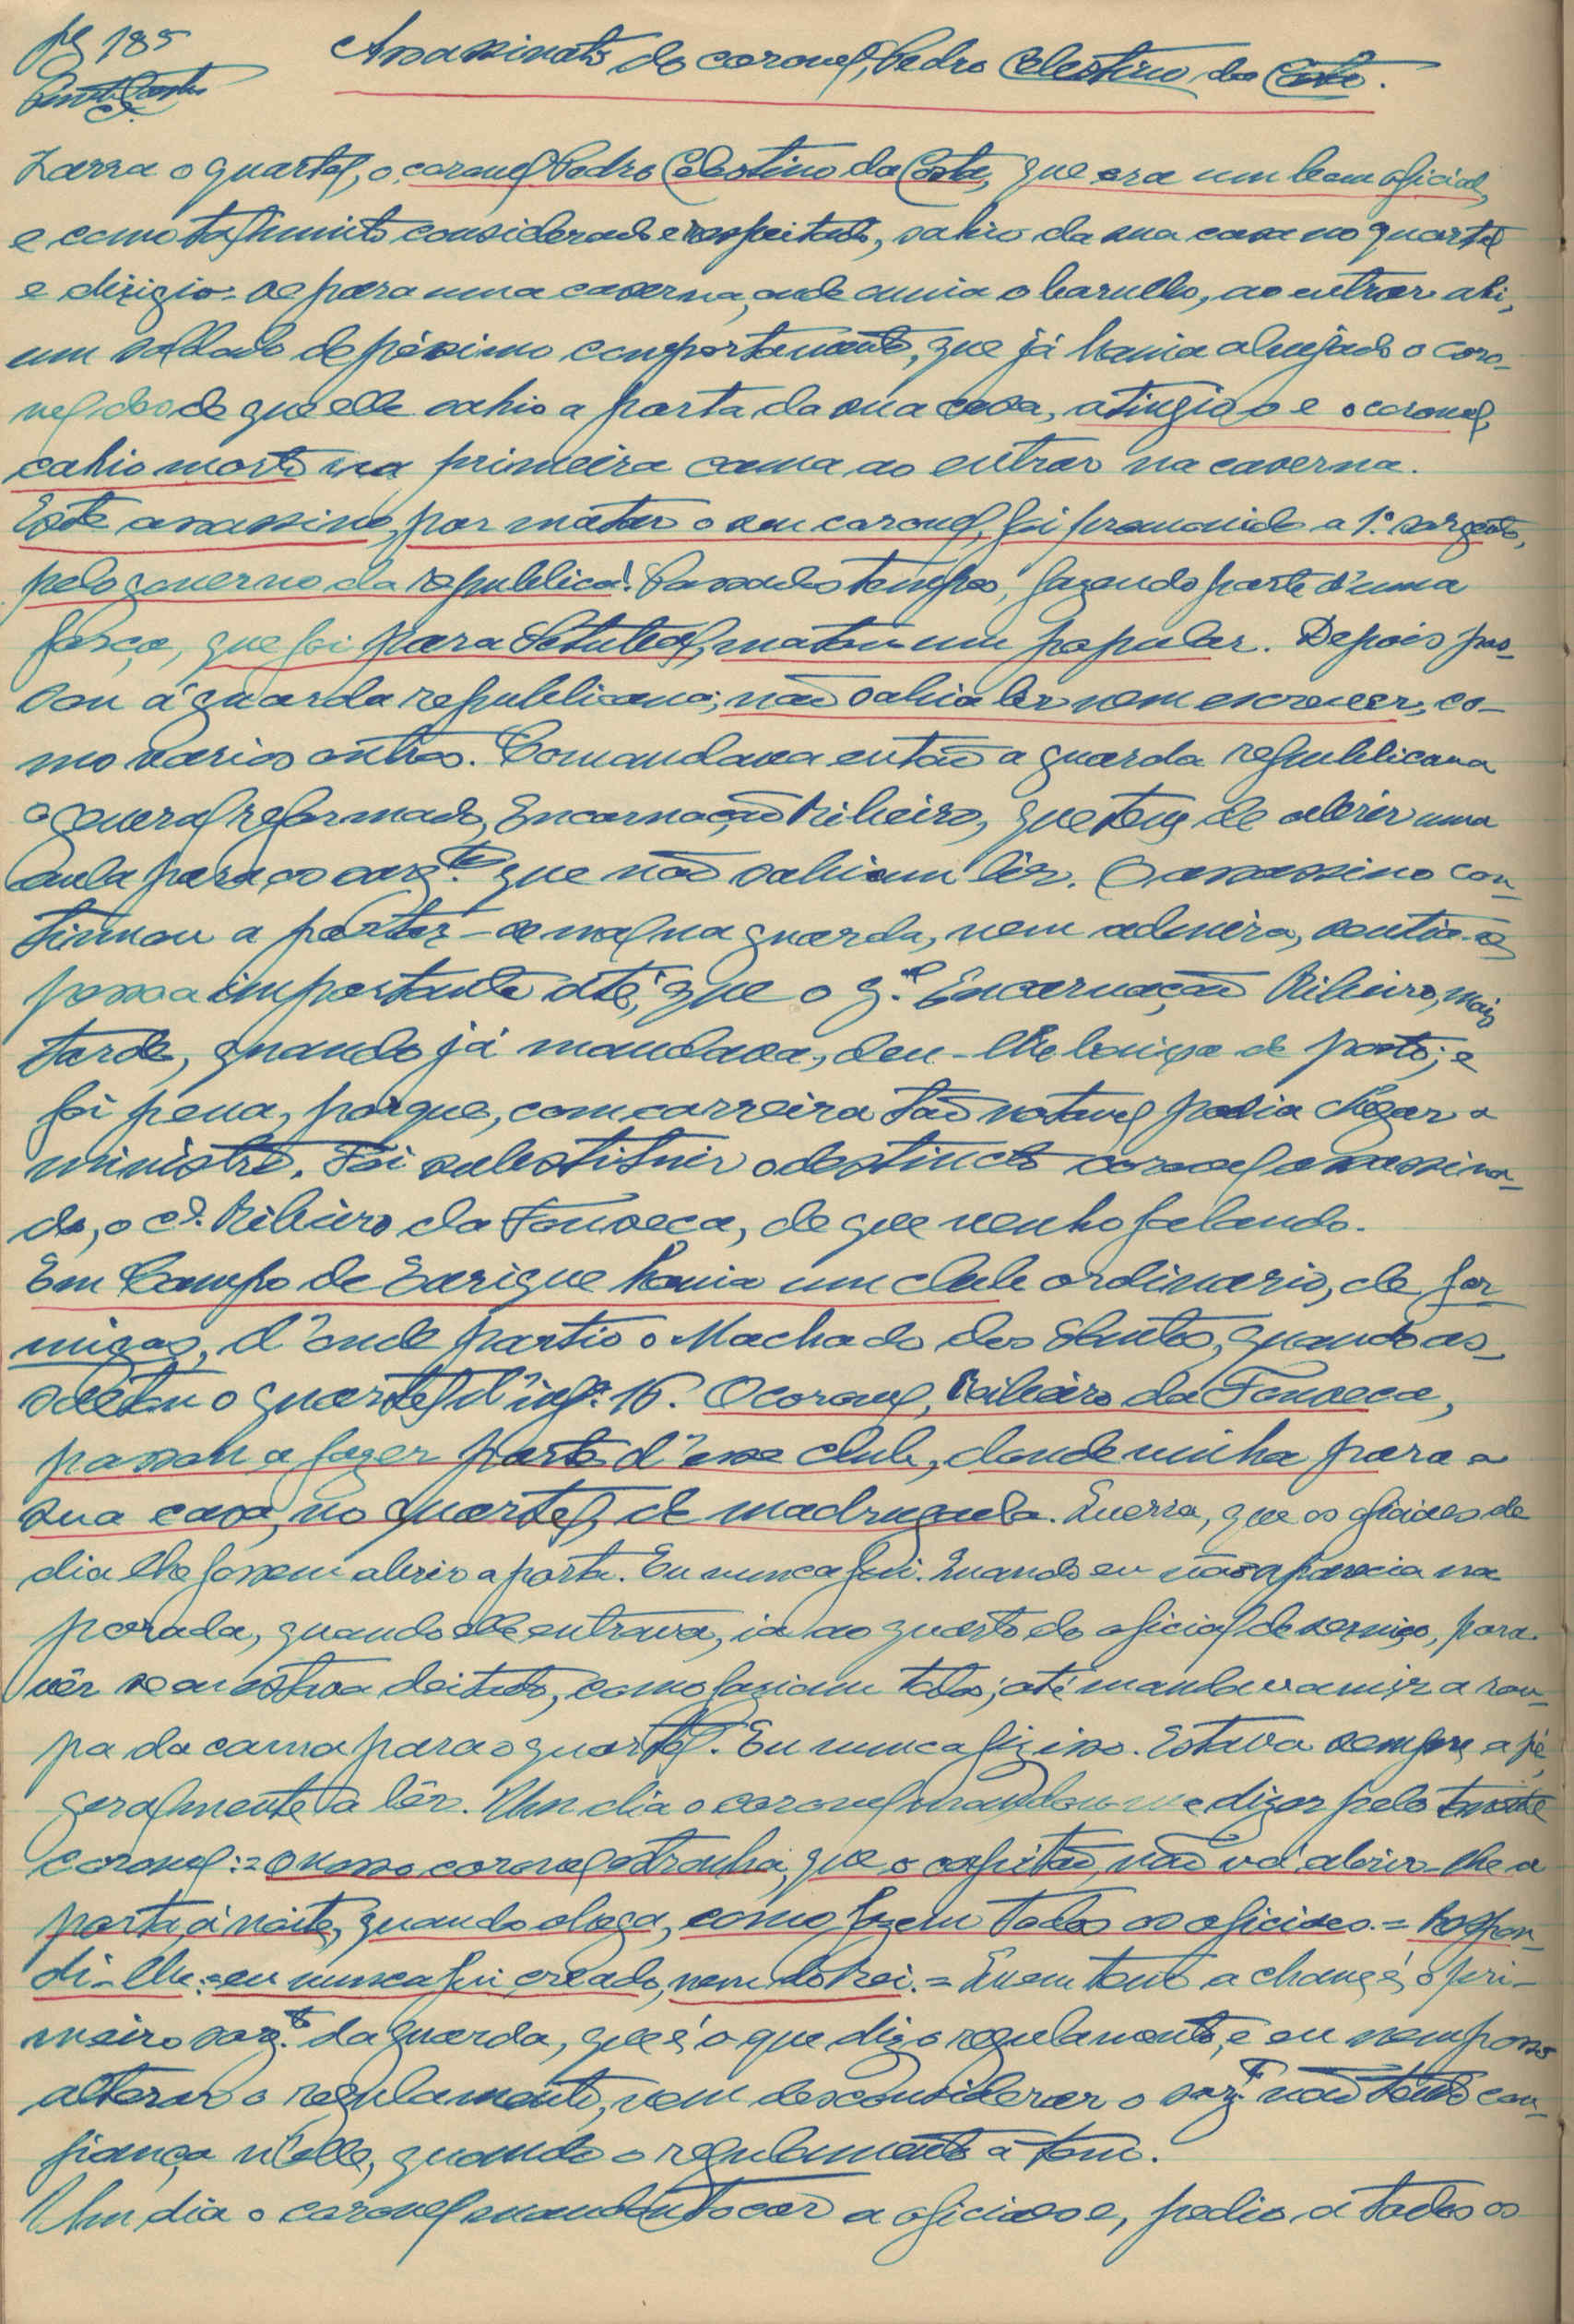 pg 185
Assassinato do coronel, Pedro Celestino da Costa.
Zarra o quartel, o coronel Pedro Celestino da Costa, que era um bom oficial,
e como tal muito considerado e respeitado, sahio da sua casa no quartel
e dirigio-se para uma caserna, onde ouvia o barulho, ao entrar ahi,
um soldado de péssimo comportamento, que já havia alvejado o coro-
nel desde que elle sahio a porta da sua casa, atingio-o e o coronel,
cahio morto na primeira cama ao entrar na caserna.
Este assassino, por matar o seu coronel, foi promovido a 1º. sargento,
pelo governo da republica! Passados tempos, fazendo parte d'uma
força, que foi para Setubal, matou um popular. Depois pas-
sou á guarda republicana; não sabia ler nem escrever, co-
mo varios outros. Comandava então a guarda republicana
o general reformado, Encarnação Ribeiro, que teve de abrir uma
aula para os sarg.tos que não sabiam lêr. O assassino con-
tinuou a portar-se mal na guarda, nem admira, sentia-se
pessoa importante até, que o g.al Encarnação Ribeiro, mais
tarde, quando já mandava, deu-lhe baixa de posto; e
foi pena, porque, com carreira tão notavel podia chegar a
ministro. Foi substituir o destincto coronel assassina-
do, o c.el Ribeiro da Fonseca, de que venho falando.
Em Campo de Ourique havia um club ordinario, de for-
migas, d'onde partio o Machado dos Santos, quando as-
saltou o quartel d'inf.a 16. O coronel, Ribeiro da Fonseca,
passou a fazer parte d'esse club, donde vinha para a
sua casa, no quartel, de madrugada. Queria, que os oficiaes de
dia lhe fossem abrir a porta. Eu nunca fui. Quando eu não aparecia na
parada, quando elle entrava, ia ao quarto do oficial de serviço, para
vêr se eu estava deitado, como faziam todos; até mandavam ir a rou-
pa da cama para o quartel. Eu nunca fiz isso. Estava sempre a pé,
geralmente a lêr. Um dia o coronel mandou-me dizer pelo tenente
coronel := o nosso coronel estranha, que o capitão, não vá abrir-lhe a
porta á noite, quando chega, como fazem todos os oficiaes. = Respon-
di-lhe: = eu nunca fui creado, nem do Rei. = Quem tem a chave é, o pri-
meiro sarg.to da guarda, que é o que diz o regulamento, e eu nem posso
alterar o regulamento, nem desconsiderar o sarg.to não tendo con-
fiança n'elle, quando o regulamento a tem.
Um dia o coronel mandou tocar a oficiaes e, pedio a todos os